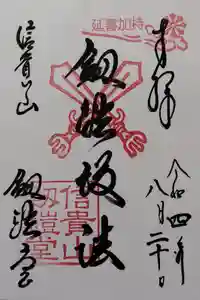 奉拝
令和四年
八月二十日
延喜加持
剱鎧護法
信貴山
剱鎧堂
信貴山
剱鎧堂